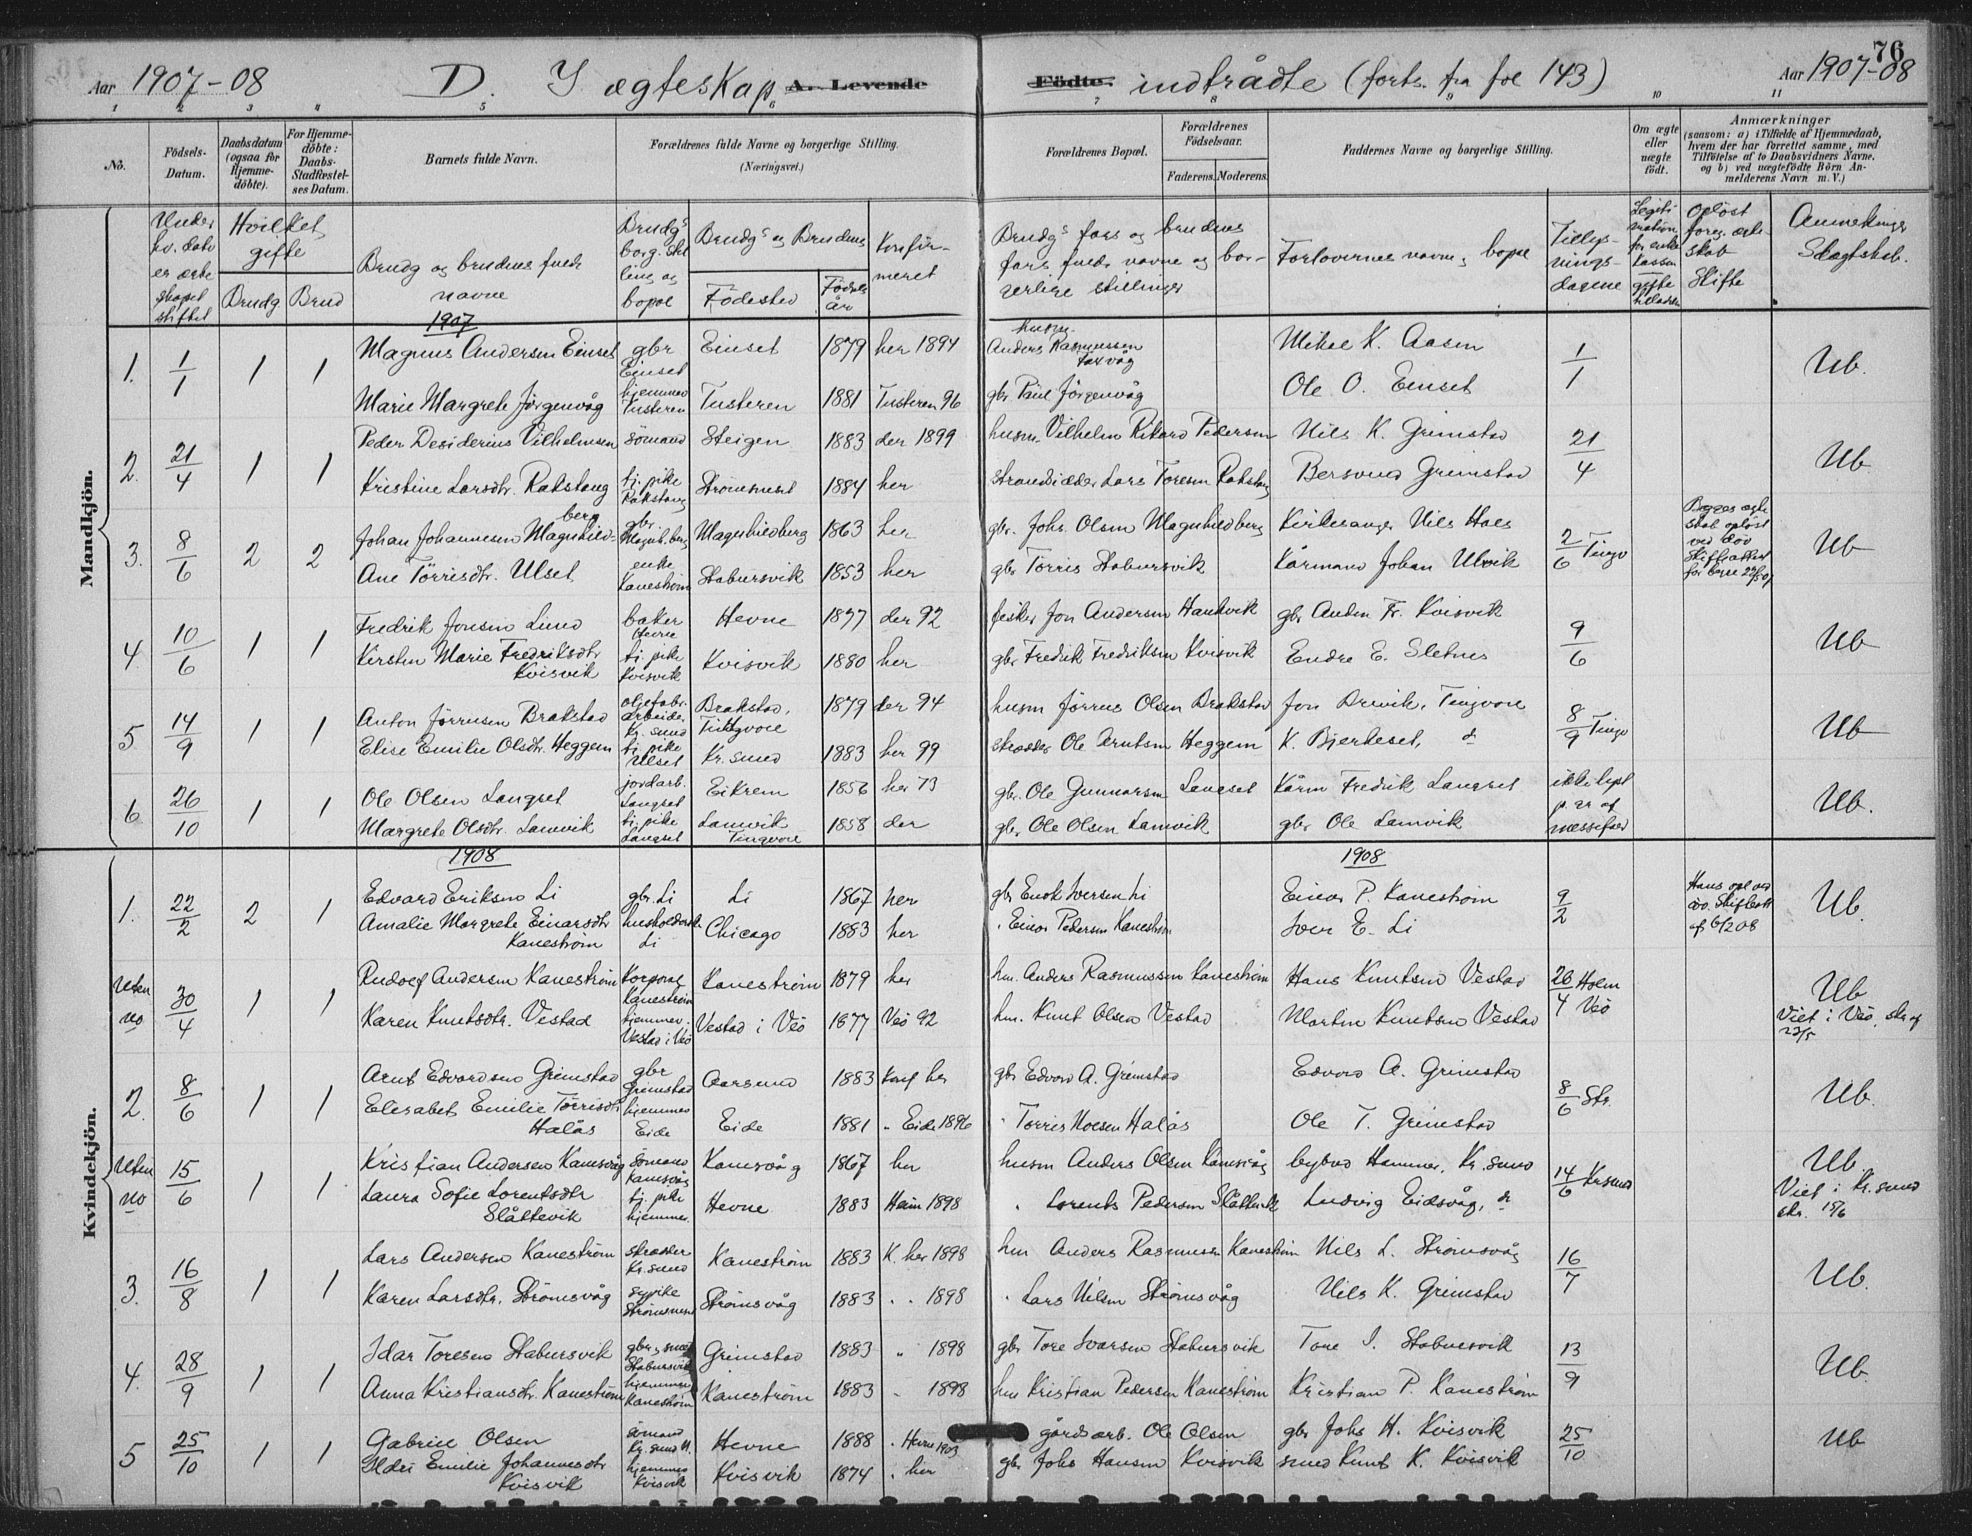 76
Aar 1907-08 D. I ægteskap A. Levende Födte. indtrådte (forts. fra fol 143) Aar 1907-08
1 2 3 4 5 6 7 8 9 10 11
No.
Födsels-Datum.
Daabsdatum (ogsaa för Hjemme-döbte).
For Hjemme-döbte: Daabs-Stadfæstel-ses Datum.
Barnets fulde Navn.
Forældrenes fulde Navne og borgerlige Stilling.
(Næringsvei.)
Forældrenes Bopæl.
Forældrenes Födselsaar.
Faderens. Moderens.
Faddernes Navne og borgerlige Stilling.
Om ægte eller nægte födt.
Anmærkninger
(saasom: a) i Tilfælde af Hjemmedaab,
hvem der har forrettet samme, med
Tilföielse af to Daabsvidners Navne,
og b) ved uægtefödte Börn An-
melderens Navn m. V.)
Under hv. dato er ægteskapet stiftet
Hvilket gifte
Brudg Brud
Brudg og brudens fulde navne
Brudgs borg. stilling og bopæl
Brudgs og Brudens
Födested Födselsår
Konfirmeret
Brudgs fars og brudens fars fulde navne og borgerlige stillinger
Forlovernes navne, bopæl
Tillysningsdagene
Opløst foreg. ægteskab Skifte
Anmerkninger Slægtskab.
Mandkjön.
1907
1. 1/1 1 1 Magnus Andersen Einset gbr Einset Einset 1879 her 1894 husm. Anders Rasmussen Torvåg Mikal K. Aasen 1/1 Ub.
Marie Margrete Jörgenvåg hjemme Tusteren Tusteren 1881 Tusteren 96 gbr Paul Jörgenvåg Ole O. Einset
2. 21/4 1 1 Peder Desiderius Vilhelmsen sömand Steigen 1883 der 1899 husm. Vilhelm Rikard Pedersen Nils K. Grimstad 21/4 Ub
Kristine Larsdtr. Rakstang tj. pike Rakstang Strömsnest 1884 her strandsidder Lars Toresen Rakstang Bersvend Grimstad
3. 8/6 2 2 Johan Johannesen Magnhildberg gbr. Magnh.berg Magnhildberg 1863 her gbr. Johs. Olsen Magnhildberg Kirkesanger Nils Hals 2/6 Tingv Begges ægteskab opløst ved død Skifteattest for begge Ub
Ane Törrisdtr. Ulset enke Kaneström Stabursvik 1853 her gbr Törris Stabursvik Kårmand Johan Ulvik
4 10/6 1 1 Fredrik Jonsen Lund baker Hevne Hevne 1877 der 92 fisker Jon Andersen Handvik gbr Anders Fr. Kvisvik 9/6 Ub
Kirsten Marie Fredriksdtr Kvisvik tj. pike Kvisvik Kvisvik 1880 her gbr Fredrik Fredriksen Kvisvik Endre E. Sletnes
5 14/9 1 1 Anton Jörnsen Brakstad oljefabr. arbeider Kr. sund Brakstad, Tingvore 1879 der 94 husm Jörnus Olsen Brakstad Jon Brevik, Tingvore 8/9 Tingv Ub
Elise Emilie Olsdtr. Heggem tj. pike Ulset Kr. sund 1883 her 99 skrædder Ole Arntsen Heggem K. Bjerkeset, do
6 26/10 1 1 Ole Olsen Langset jordarb. Langset Eikrem 1856 her 73 gbr. Ole Gunnarsen Langset Kårm Fredrik Langset ikke lyst p. gr af messefald Ub.
Margrete Olsdtr. Lamvik tj. pike Langset Lamvik Tingvore 1858 der gbr Ole Olsen Lamvik gbr Ole Lamvik
Kvindekjön.
1908 1908
1. 22/2 2 1 Edvard Eriksen Li gbr. Li Li 1867 her gbr Enok Iversen Li Einar P. Kaneström 9/2 Hans opl ved død. Skifteatt af 6/2 08 Ub.
Amalie Margrete Einarsdtr Kaneström husholderske Li Chicago 1883 her " Einar Pedersen Kaneström Iver E. Li
Uten no 30/4 1 1 Rudolf Andersen Kaneström Korporal Kaneström Kaneström 1879 her hm. Anders Rasmussen Kaneström Hans Knutsen Vestad 26/4 Holm Veö Ub
Karen Knutsdtr. Vestad hjemme Vestad i Veö Vestad i Veö 1877 Veö 92 hm. Knut Olsen Vestad Martin Knutsen Vestad Viet i Veö, skr af
2. 8/6 1 1 Arnt Edvardsen Grimstad gbr Grimstad Aarsund 1883 Konf her gbr Edvard A. Grimstad Edvard A. Grimstad 8/6 Str. Ub.
Elisabet Emilie Törrisdtr Halås hjemme Eide Eide 1881 " Eide 1896 " Törris Moesen Halås Ole T. Grimstad
Uten no 15/6 1 1 Kristian Andersen Kamsvåg sömand Kamsvåg Kamsvåg 1867 her husm Anders Olsen Kamsvåg bybud Hammer, Kr. sund 14/6 Krsund Ub
Laura Sofie Lorentsdtr Slåttevik tj. pike hjemme Hevne 1883 Heim 1898 " Lorents Pedersen Slåttevik Ludvig Eidsvåg, do Viet i Kr. sund skr. 15/6
3. 16/8 1 1 Lars Andersen Kaneström skrædder Kr. sund Kaneström 1883 K. her 1898 hm Anders Rasmussen Kaneström Nils L. Strömsvåg 16/7 Ub.
Karen Larsdtr. Strömsvåg sypike Strömsnest Strömsvåg 1883 " " 1898 " Lars Nilsen Strömsvåg Nils K. Grimstad
4. 28/9 1 1 Idar Toresen Stabursvik gbr, smed Stabursvik Grimstad 1883 " 1898 gbr Tore Ivarsen Stabursvik Tore I. Stabursvik 13/9 Ub.
Anna Kristiansdtr. Kaneström hjemme Kaneström Kaneström 1883 " 1898 hm Kristian Pedersen Kaneström Kristian P. Kaneström
5 25/10 1 1 Gabriel Olsen sömand Kr. sund N. Hevne 1888 " Hevne 1903 gårdsarb. Ole Olsen gbr Johs H. Kvisvik 25/10 Ub
Ildri Emilie Johannesdtr Kvisvik hjemme Kvisvik Kvisvik 1874 " her gbr Johs Hansen Kvisvik smed Knut K. Kvisvik